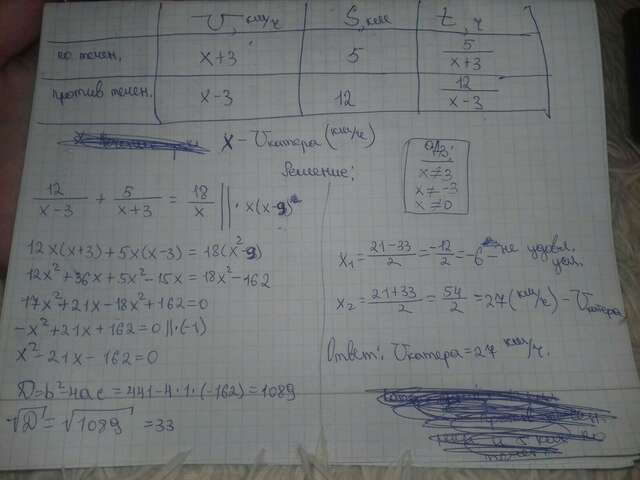 V, км/ч S, км t, ч
по течен. x+3 5 5/(x+3)
против течен. x-3 12 12/(x-3)
x - Vкатера (км/ч)
Решение:
ОДЗ:
x≠3
x≠-3
x≠0
12/(x-3) + 5/(x+3) = 18/x || · x(x-9)
12x(x+3)+5x(x-3)=18(x²-9)
12x²+36x+5x²-15x=18x²-162
17x²+21x-18x²+162=0
-x²+21x+162=0 ||·(-1)
x²-21x-162=0
D=b²-4ac=441-4·1·(-162)=1089
√D=√1089=33
x₁=(21-33)/2=-12/2=-6 - не удовл. усл.
x₂=(21+33)/2=54/2=27(км/ч) - Vкатера
Ответ: Vкатера=27 км/ч.